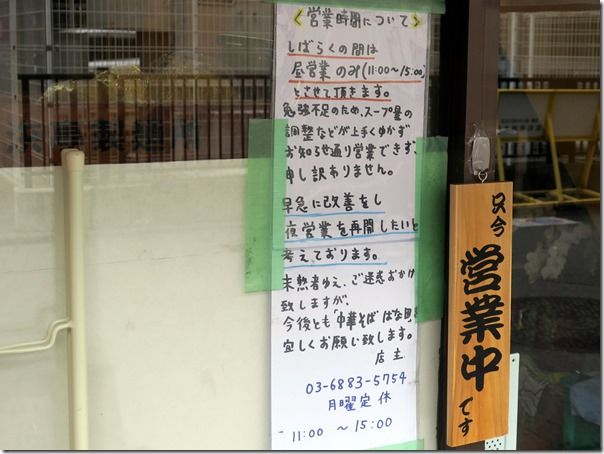 <営業時間について>
しばらくの間は
昼営業のみ(11:00〜15:00)
とさせて頂きます。
勉強不足のため、スープ量の
調整などが上手くゆかず
お知らせ通り営業できず、
申し訳ありません。
早急に改善をし
夜営業を再開したいと
考えております。
未熟者ゆえ、ご迷惑おかけ
致しますが、
今後とも「中華そば ばな田」を
宜しくお願い致します。
店主
03-6883-5754
月曜定休
11:00 〜 15:00
只今
営業中
です